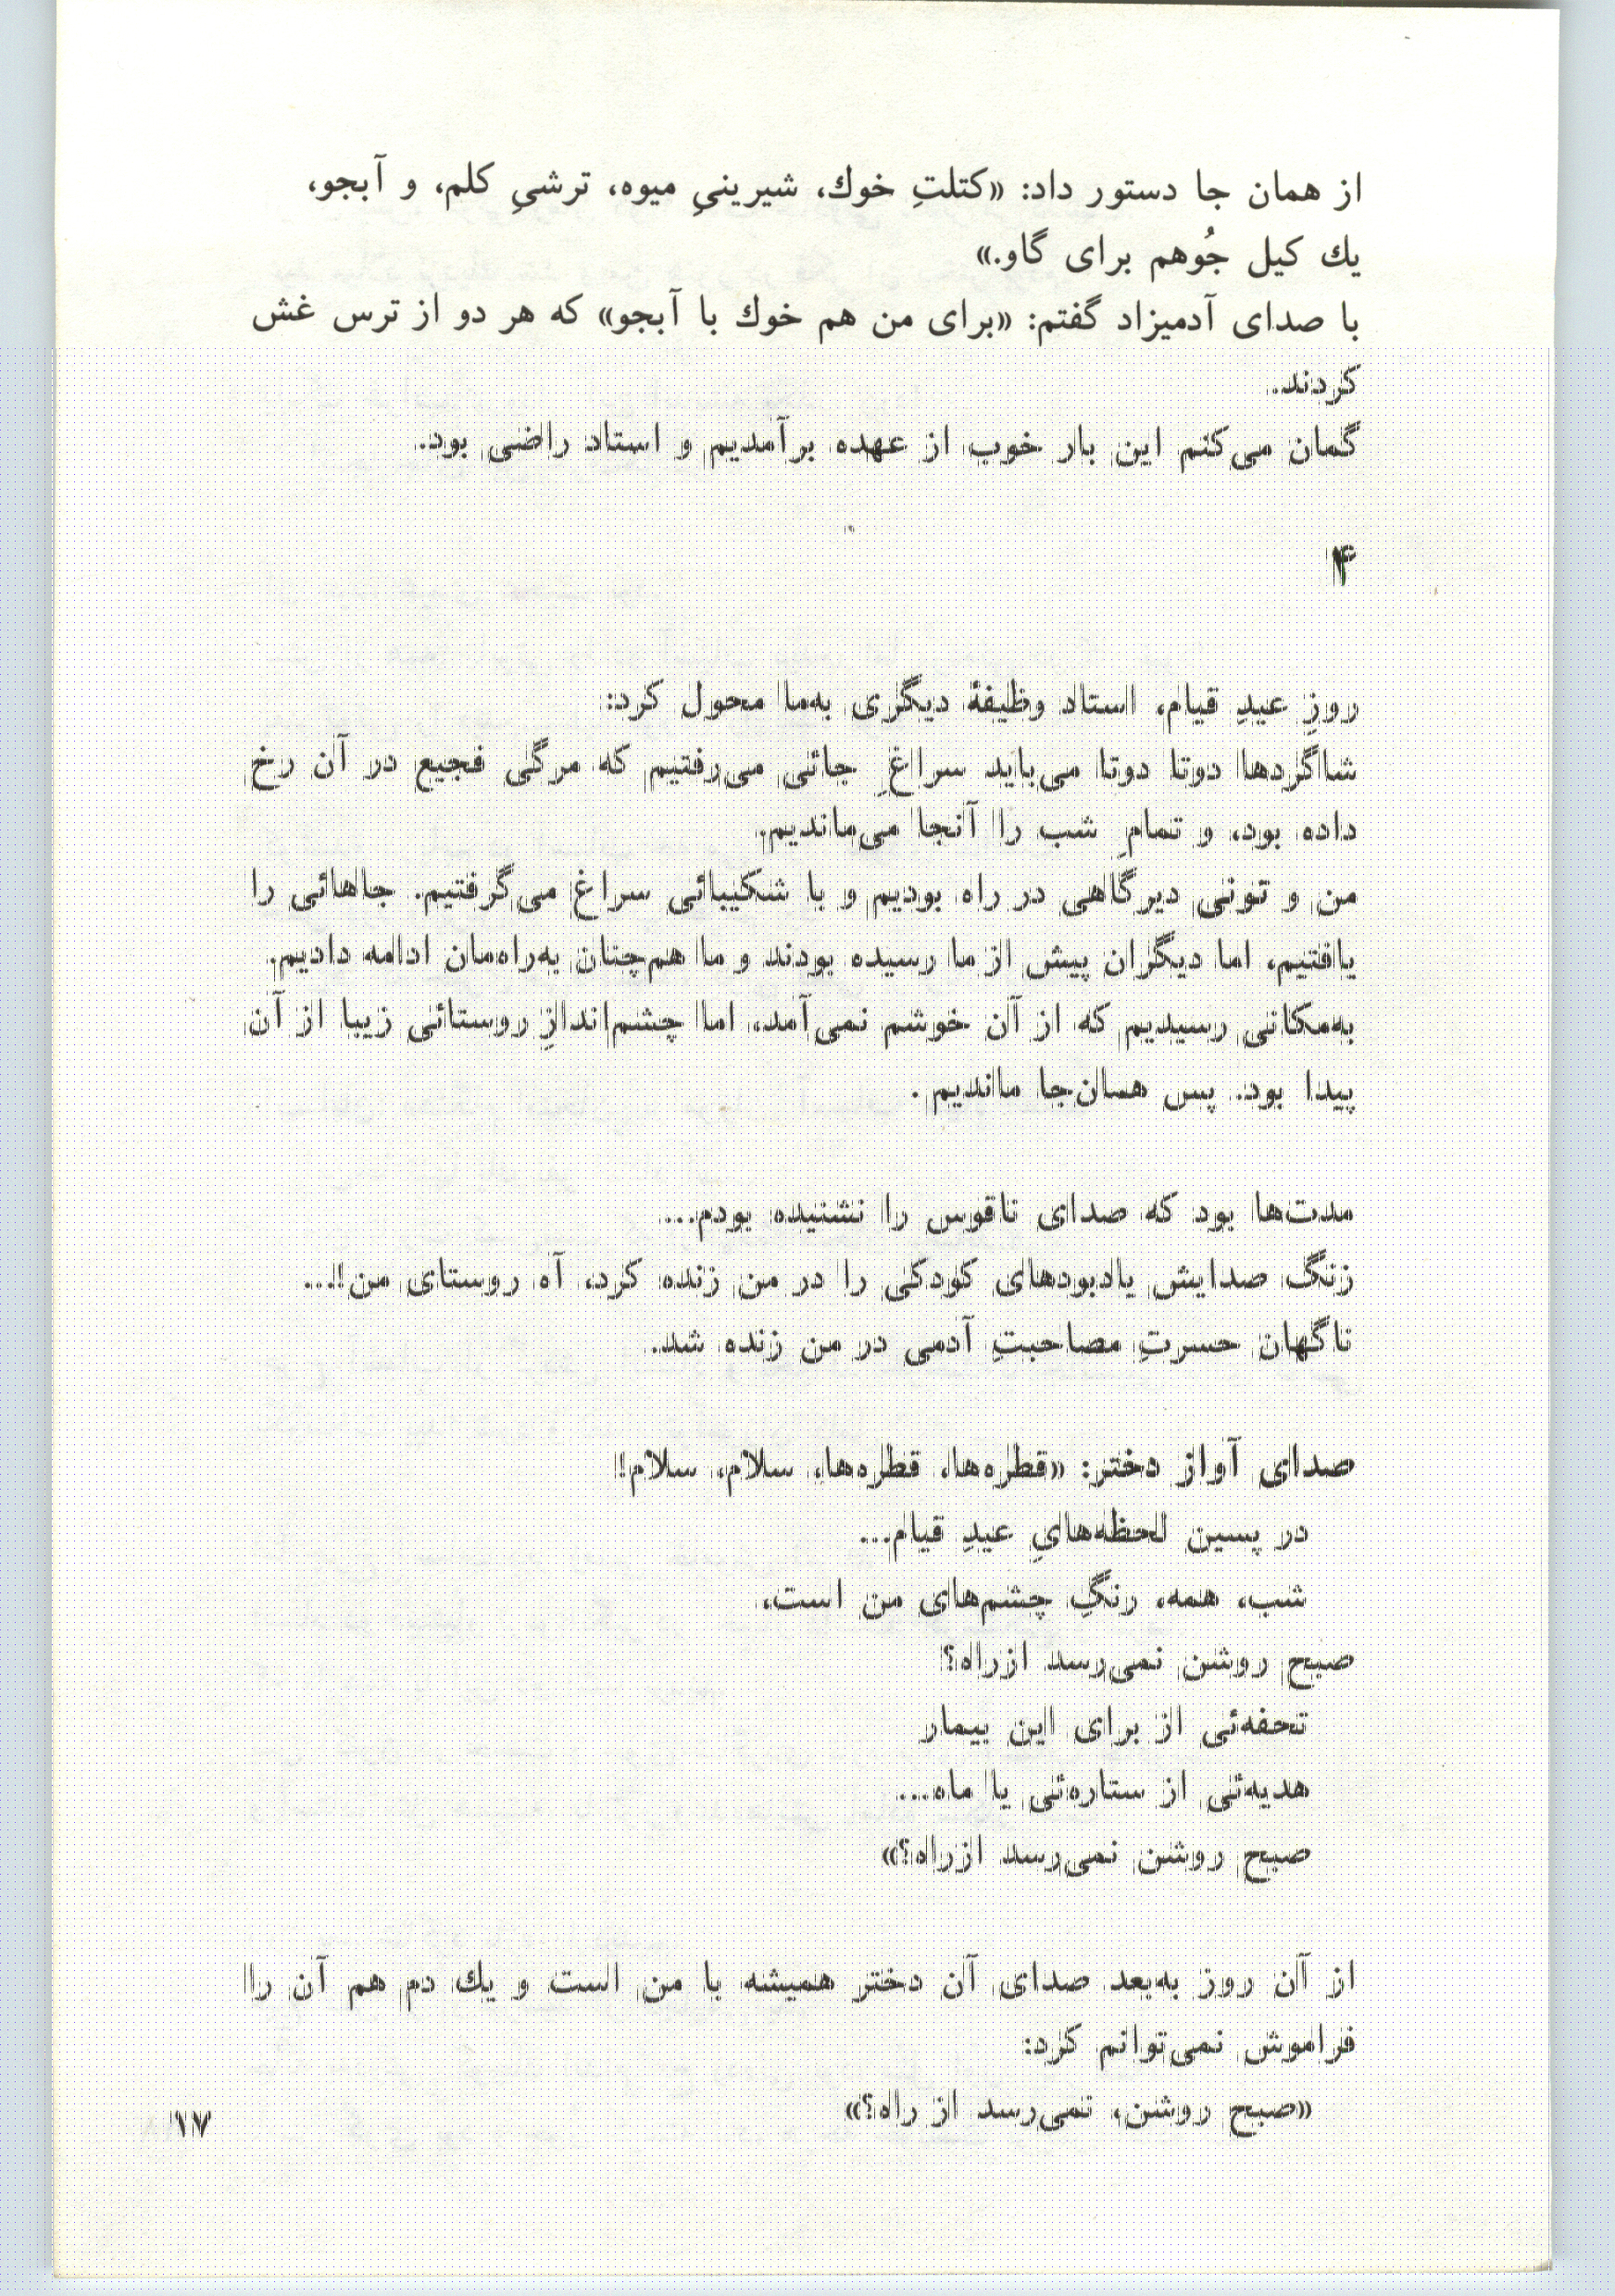 از همان جا دستور داد: «کتلتِ خوك، شیرینیِ میوه، ترشیِ کلم، و آبجو،
یك کیل جُوهم برای گاو.»
با صدای آدمیزاد گفتم: «برای من هم خوك با آبجو» که هر دو از ترس غش
کردند.
گمان می‌کنم این بار خوب از عهده برآمدیم و استاد راضی بود.
۴
روزِ عیدِ قیام، استاد وظیفهٔ دیگری به‌ما محول کرد:
شاگردها دوتا دوتا می‌باید سراغِ جائی می‌رفتیم که مرگی فجیع در آن رخ
داده بود، و تمامِ شب را آنجا می‌ماندیم.
من و تونی دیرگاهی در راه بودیم و با شکیبائی سراغ می‌گرفتیم. جاهائی را
یافتیم، اما دیگران پیش از ما رسیده بودند و ما هم‌چنان به‌راه‌مان ادامه دادیم.
به‌مکانی رسیدیم که از آن خوشم نمی‌آمد، اما چشم‌اندازِ روستائی زیبا از آن
پیدا بود. پس همان‌جا ماندیم.
مدت‌ها بود که صدای ناقوس را نشنیده بودم...
زنگ صدایش یادبودهای کودکی را در من زنده کرد، آه روستای من!...
ناگهان حسرتِ مصاحبتِ آدمی در من زنده شد.
صدای آواز دختر: «قطره‌ها، قطره‌ها، سلام، سلام!
در پسین لحظه‌هایِ عیدِ قیام...
شب، همه، رنگِ چشم‌های من است،
صبح روشن نمی‌رسد ازراه؟
تحفه‌ئی از برای این بیمار
هدیه‌ئی از ستاره‌ئی یا ماه...
صبح روشن نمی‌رسد ازراه؟»
از آن روز به‌بعد صدای آن دختر همیشه با من است و یك دم هم آن را
فراموش نمی‌توانم کرد:
«صبح روشن، نمی‌رسد از راه؟»
۱۷